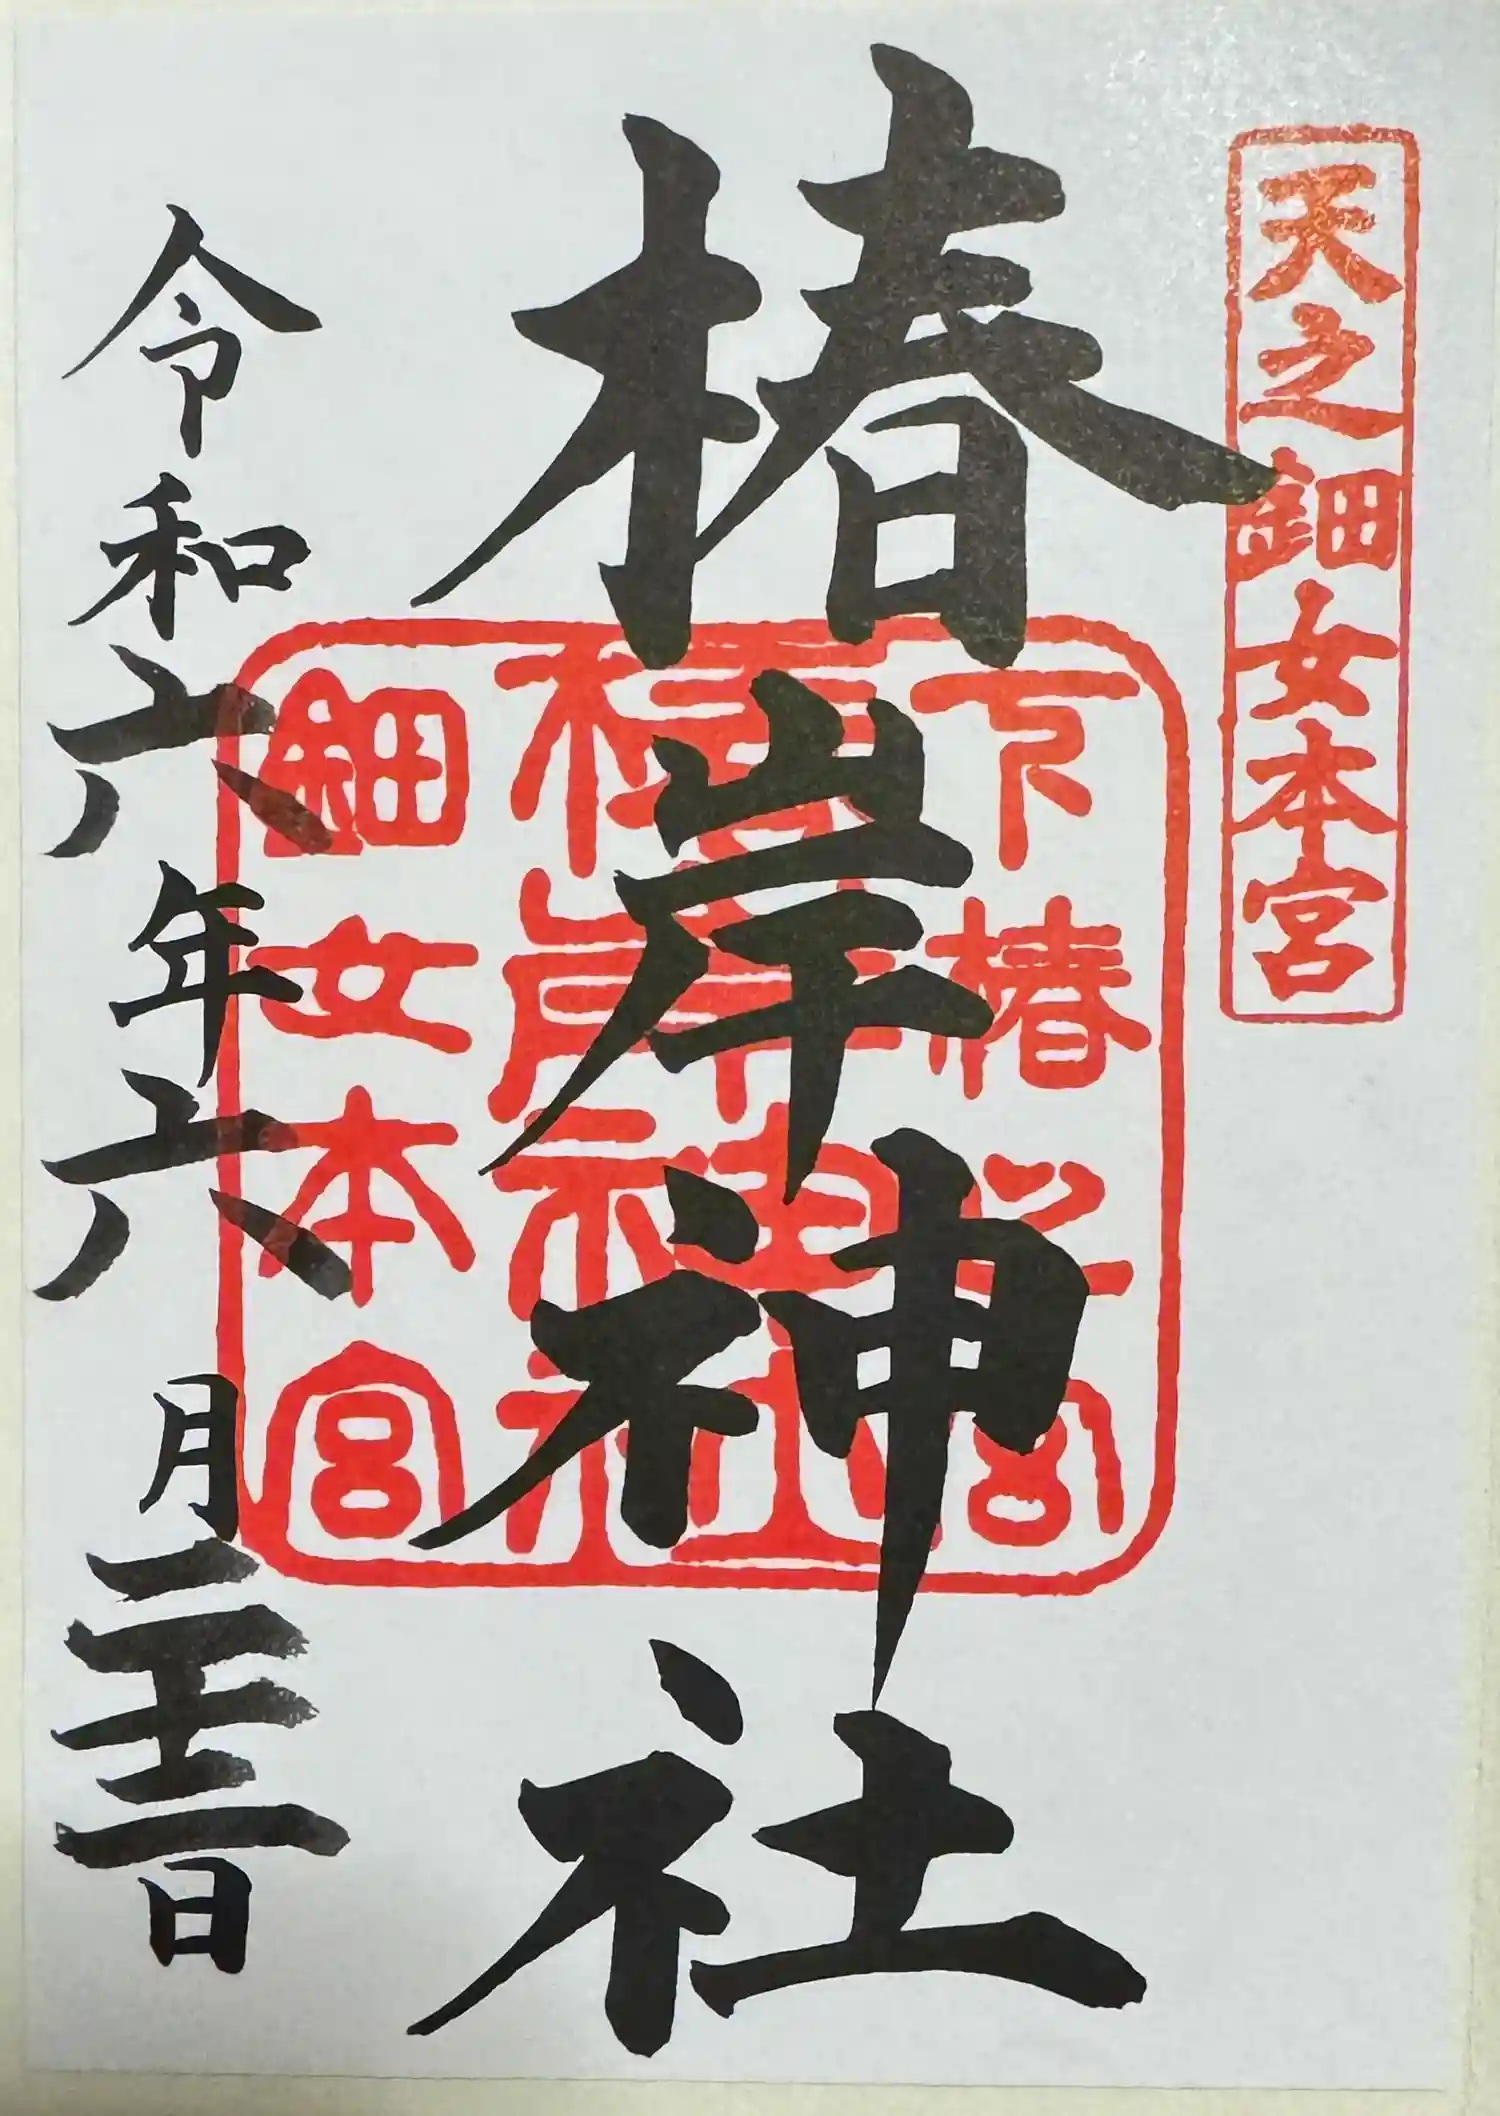 天之鈿女本宮
椿岸神社
下椿宮
椿岸神社
鈿女本宮
令和六年六月二十二日